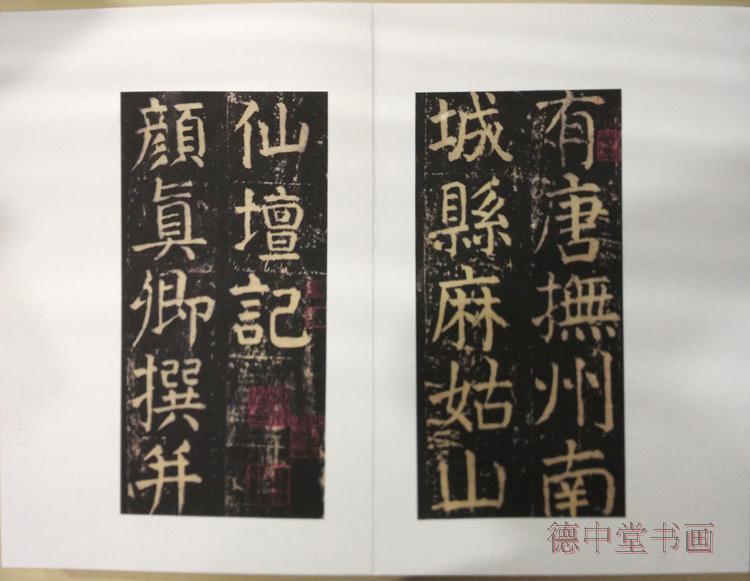 有唐撫州南
城縣麻姑山
仙壇記
顔眞卿撰并
德中堂书画